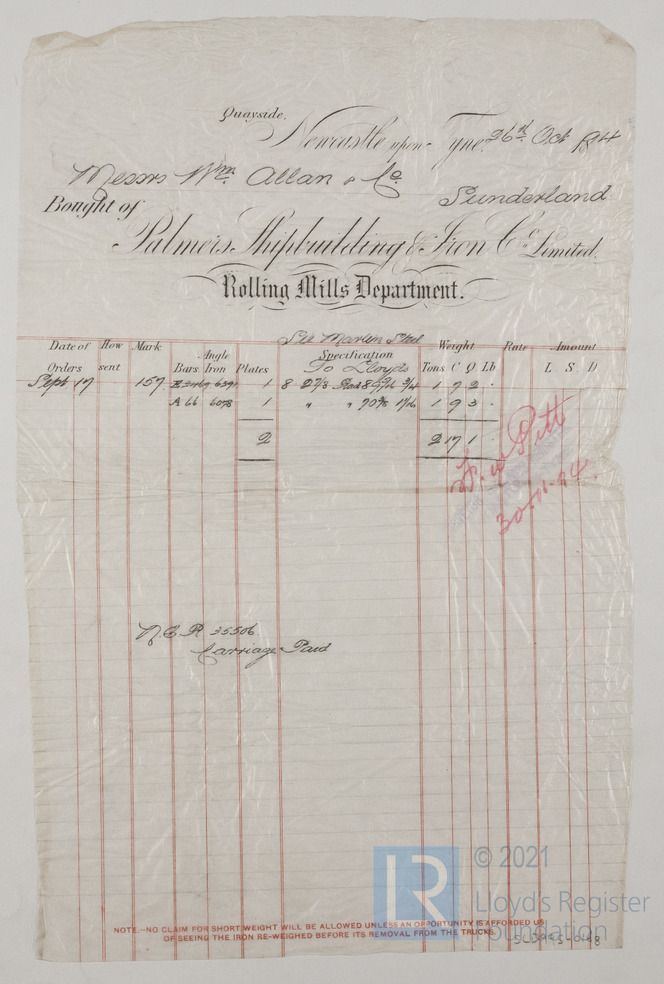 Quayside,
Newcastle upon Tyne 26th Oct 1894
Messrs Wm Allan & Co
Sunderland
Bought of
Palmers Shipbuilding & Iron Co Limited.
Rolling Mills Department.
Martin Steel
Date of Orders How sent Mark Bars Angle Iron Plates Specification Weight Tons C Q Lb Rate Amount L S D
To Lloyds
Sept 17 157 1 8 1 7 2
A 66 6078 1 " " 1 9 3
2 2 17 1
30-11-94
N.E.R 35506
Carriage Paid
NOTE.—NO CLAIM FOR SHORT WEIGHT WILL BE ALLOWED UNLESS AN OPPORTUNITY IS AFFORDED US
OF SEEING THE IRON RE-WEIGHED BEFORE ITS REMOVAL FROM THE TRUCKS.
LR
© 2021
Lloyd's Register
Foundation